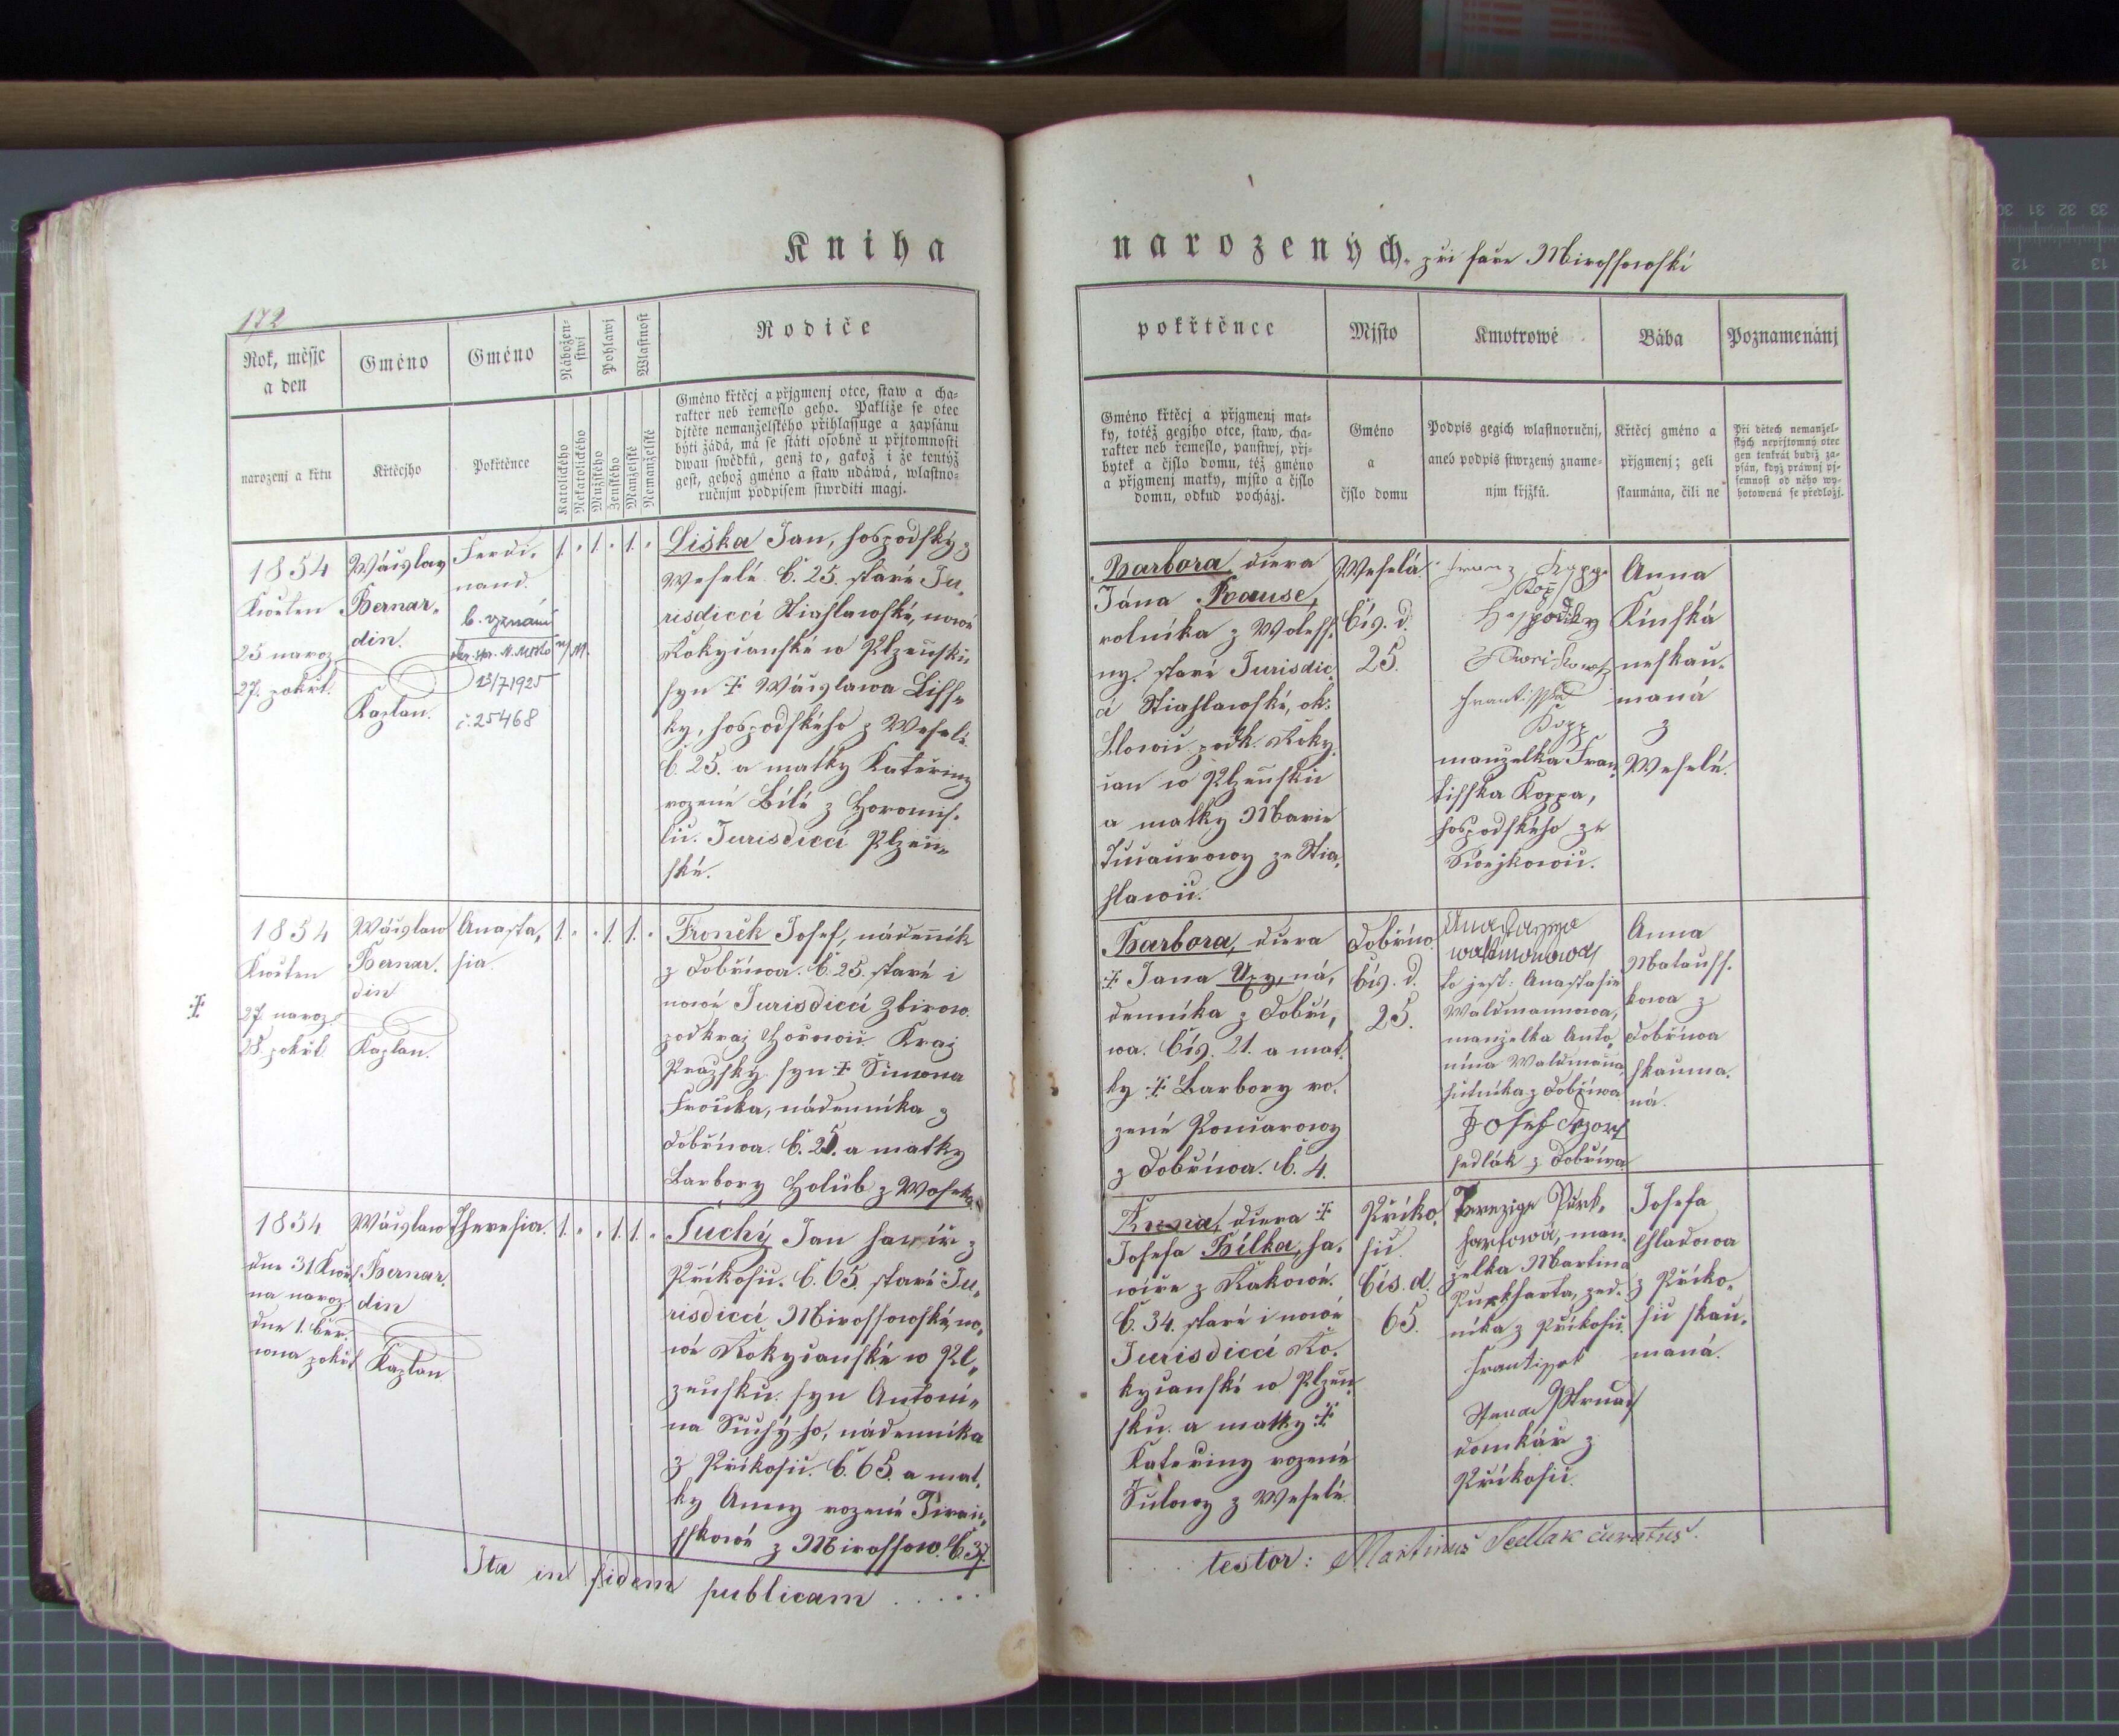 Kniha
172
Rok, měsjc
a den
Gméno
Gméno
Nábožen-
stwi
Pohlawj
Wlastnost
Rodiče
narozenj a křtu
Křtěcjho
Pokřtěnce
Katolického
Nekatolického
Mužského
Ženského
Manželské
Nemanželské
Gméno křtěcj a přjgmenj otce, staw a cha-
rakter neb řemeslo geho. Pakliže se otec
djtěte nemanželského přihlassuge a zapsánu
býti žádá, má se státi osobně u přjtomnosti
dwau swědků, genž to, gakož i že tentýž
gest, gehož gméno a staw udáwá, wlastno-
ručnjm podpisem stwrditi magj.
1854
Kwěten
25 naroz.
27. pokřt.
Wácslaw
Bernar-
din.
Kaplan.
Ferdi-
nand.
b. vyznání
13/7 1925
č. 25468
1. " 1. " 1. "
Liška Jan, hospodský z
Weselé č. 25. staré Ju-
risdicci Stiahlawské, nowé
Rokycanské w Plzeňsku
syn ✝ Wácslawa Lišs-
ky, hospodského z Weselé
č. 25. a matky Kateřiny
rozené Bílé z Horomis-
lic. Jurisdicci Plzeň-
ské.
1854
Kwěten
27. naroz.
28. pokřt.
Wácslaw
Bernar-
din
Kaplan.
Anasta-
sia.
1. " " 1. 1. "
Froněk Josef, nádenník
z Dobříwa. č. 25. staré i
nowé Jurisdicci Zbirow.
podkraj Hořowic. Kraj
Pražský syn ✝ Šimona
Froňka, nádenníka z
Dobříwa. č. 25. a matky
Barbory Holub z Woseka.
1854
dne 31 Kwět-
na naroz.
dne 1. čer-
wna pokřt.
Wácslaw
Bernar-
din
Kaplan.
Theresia.
1. " " 1. 1. "
Suchý Jan hawíř z
Příkosic. č. 65. staré Ju-
risdicci Mirossowské, no-
wé Rokycanské w Pl-
zeňsku. syn Antoni-
na Suchýho, nádenníka
z Příkosic. č. 65. a mat-
ky Anny rozené
z Mirossow. č. 37.
Ita in fidem publicam . . . . .
narozených. při faře Mirossowské
pokřtěnce
Mjsto
Kmotrowé
Bába
Poznamenánj
Gméno křtěcj a přjgmenj mat-
ky, totéž gegjho otce, staw, cha-
rakter neb řemeslo, panstwj, přj-
bytek a čjslo domu, též gméno
a přjgmenj matky, mjsto a čjslo
domu, odkud pocházj.
Gméno
a
čjslo domu
Podpis gegich wlastnoručnj,
aneb podpis stwrzený zname-
njm křjžků.
Křtěcj gméno a
přjgmenj; geli
skaumána, čili ne
Při dětech nemanžel-
ských nepřjtomný otec
gen tenkrát budiž za-
psán, když práwnj pj-
semnost od něho wy-
hotowená se předložj.
Barbora, dcera
Jána Krause,
rolníka z Woless-
ny. staré Jurisdic-
ci Stiahlawské, ok.
podk. Roky-
can w Plzeňsku
a matky Marie
ze Stia-
hlawic.
Weselá.
čís. d.
25.
Franz Kopp
Kopp
hospodsky
Františka
Kopp
manželka Fran-
tisska Koppa,
hospodského ze
Swejkowic.
Anna
Kinská
neskau-
maná
z
Weselé.
Barbora, dcera
✝ Jana , ná-
denníka z Dobří-
wa. čís. 21. a mat-
ky ✝ Barbory ro-
zené
z Dobříwa. č. 4.
Dobříw.
čís. d.
25.
to jest: Anastasie
Waldmannowa,
manželka Anto-
nína Waldmanna
z Dobříwa
Josef
sedlák z Dobříwa
Anna
Matauss-
kowa z
Dobříwa
skauma-
ná.
Anna, dcera ✝
Josefa Bílka, ha-
wíře z Rakowé.
č. 34. staré i nowé
Jurisdicci Ro-
kycanské w Plzeň-
sku. a matky ✝
Kateřiny rozené
z Weselé.
Příko-
sic.
čís. d.
65.
Terezige Purk-
hartowá, man-
želka Martina
Purkharta, zed-
níka z Příkosic.
Frantissek
domkář z
Příkosic.
Josefa
Hladowa
z Příko-
sic skau-
maná.
. . . testor: Martinus Sedlak curatus.